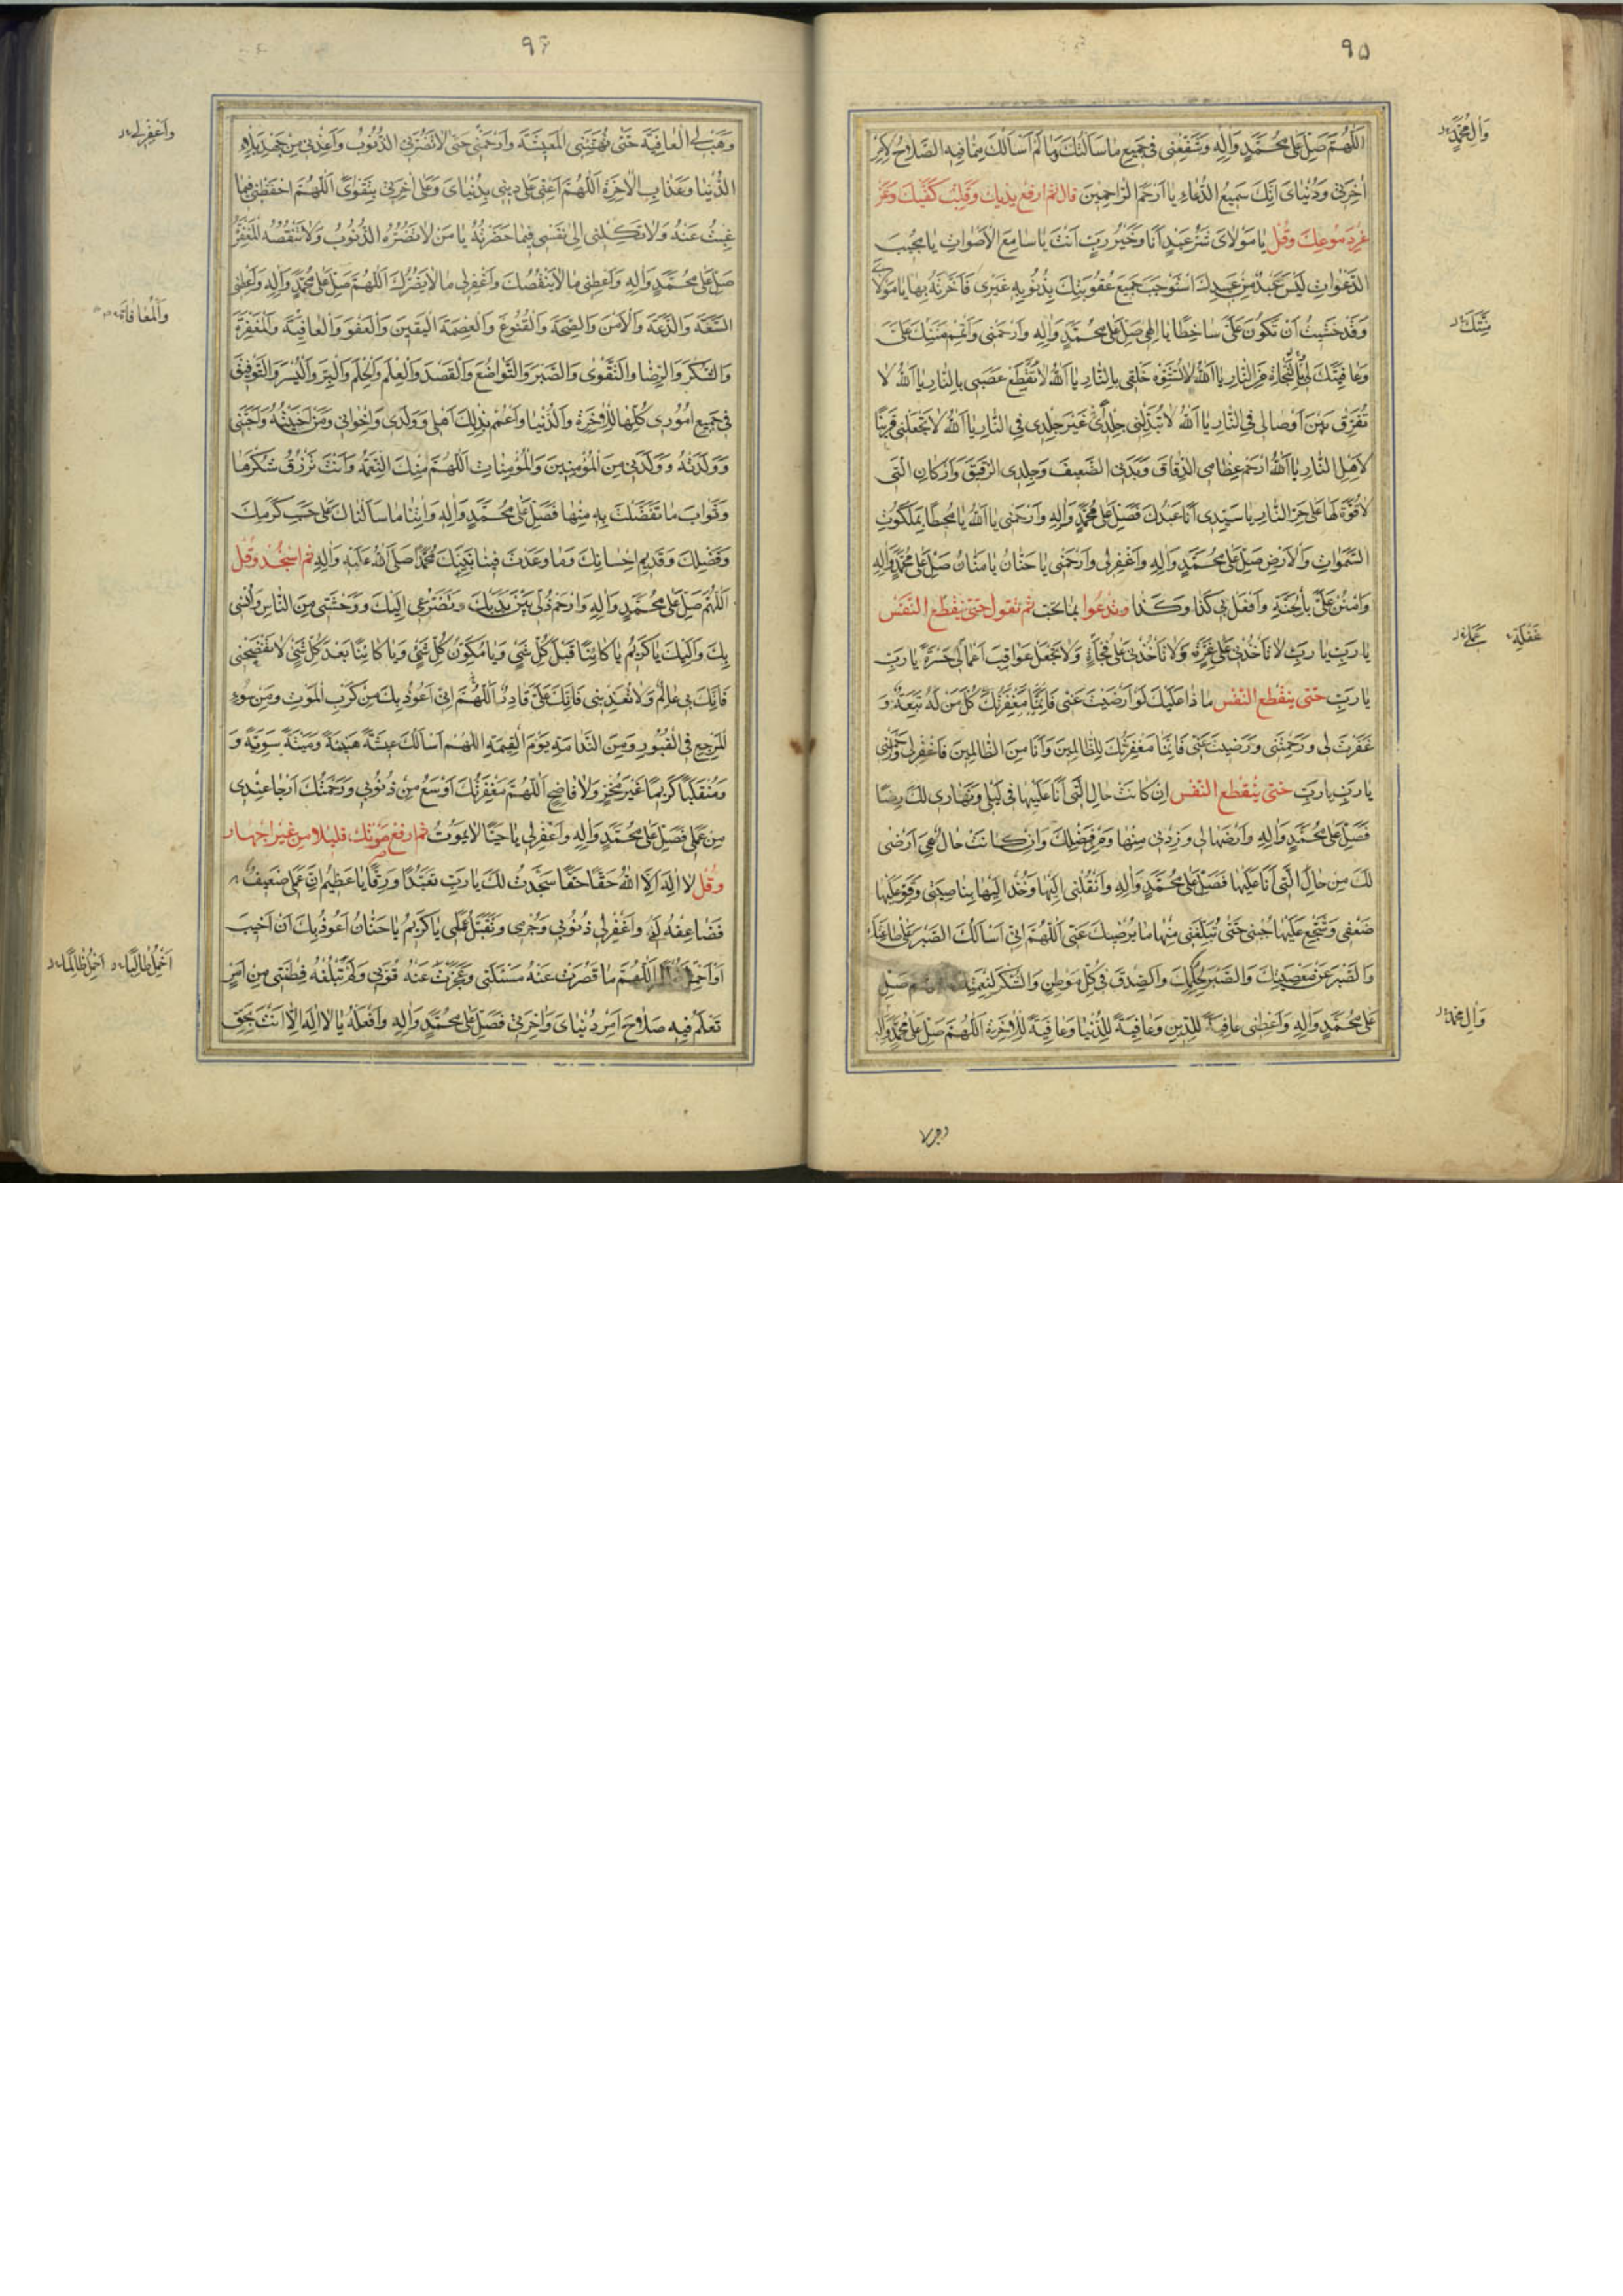 ٩۵
اَللّٰهُمَّ صَلِّ عَلىٰ مُحَمَّدٍ وَاٰلِهِ وَشَفِّعْنى فى جَميعِ ما سَاَلْتُكَ وَما لَمْ اَسْاَلْكَ مِمّا فيهِ الصَّلاحُ لِاَمْرِ
اٰخِرَتى وَدُنْياىَ اِنَّكَ سَميعُ الدُّعاءِ يا اَرْحَمَ الرّاحِمينَ قال ثم ارفع يديك وقلب كفيك وغر
غر دموعك وقل يا مَوْلاىَ شَرُّ عَبْدٍ اَنَا وَخَيْرُ رَبٍّ اَنْتَ يا سامِعَ الْاَصْواتِ يا مُجيبَ
الدَّعَواتِ لَيْسَ عَبْدٌ مِنْ عَبيدِكَ اسْتَوْجَبَ جَميعَ عُقُوبَتِكَ بِذُنُوبِهِ غَيْرى فَاَخَّرْتَهُ بِها يا مَوْلاىَ
وَقَدْ خَشيتُ اَنْ تَكُونَ عَلَىَّ ساخِطًا يا اِلٰهى صَلِّ عَلىٰ مُحَمَّدٍ وَاٰلِهِ وَارْحَمْنى وَاَتْمِمْ مَنَّكَ عَلَىَّ
وَعافِيَتَكَ لى بِالنَّجاةِ مِنَ النّارِ يا اَللهُ لا تُشَوِّهْ خَلْقى بِالنّارِ يا اَللهُ لا تُقَطِّعْ عَصَبى بِالنّارِ يا اَللهُ لا
تُفَرِّقْ بَيْنَ اَوْصالى فِى النّارِ يا اَللهُ لا تُبَدِّلْنى جِلْدًا غَيْرَ جِلْدى فِى النّارِ يا اَللهُ لا تَجْعَلْنى قَرينًا
لِاَهْلِ النّارِ يا اَللهُ ارْحَمْ عِظامِى الدِّقاقَ وَبَدَنِى الضَّعيفَ وَجِلْدِى الرَّقيقَ وَاَرْكانِى الَّتى
لا قُوَّةَ لَها عَلىٰ حَرِّ النّارِ يا سَيِّدى اَنَا عَبْدُكَ فَصَلِّ عَلىٰ مُحَمَّدٍ وَاٰلِهِ وَارْحَمْنى يا اَللهُ يا مُحيطًا بِمَلَكُوتِ
السَّمٰواتِ وَالْاَرْضِ صَلِّ عَلىٰ مُحَمَّدٍ وَاٰلِهِ وَاغْفِرْ لى وَارْحَمْنى يا حَنّانُ يا مَنّانُ صَلِّ عَلىٰ مُحَمَّدٍ وَاٰلِهِ
وَامْنُنْ عَلَىَّ بِالْجَنَّةِ وَافْعَلْ بى كَذا وَكَذا وتدعوا بما تحب ثم تقول حتى ينقطع النفس
يا رَبِّ يا رَبِّ لا تَاْخُذْنى عَلىٰ غِرَّةٍ وَلا تَاْخُذْنى عَلىٰ فَجْاَةٍ وَلا تَجْعَلْ عَواقِبَ اَعْمالى حَسْرَةً يا رَبِّ
يا رَبِّ حتى ينقطع النفس ما ذا عَلَيْكَ لَوْ اَرْضَيْتَ عَنّى فَاِنَّما مَغْفِرَتُكَ كُلَّ مَنْ لَهُ تَبِعَةٌ وَ
غَفَرْتَ لى وَرَحِمْتَنى وَرَضيتَ عَنّى فَاِنَّما مَغْفِرَتُكَ لِلظّالِمينَ وَاَنَا مِنَ الظّالِمينَ فَاغْفِرْ لى وَارْحَمْنى
يا رَبِّ يا رَبِّ حتى ينقطع النفس اِنْ كانَتْ حالِى الَّتى اَنَا عَلَيْها فى لَيْلى وَنَهارى لَكَ رِضًا
فَصَلِّ عَلىٰ مُحَمَّدٍ وَاٰلِهِ وَارْضَها لى وَزِدْنى مِنْها وَمِنْ فَضْلِكَ وَاِنْ كانَتْ حالٌ هِىَ اَرْضىٰ
لَكَ مِنْ حالِى الَّتى اَنَا عَلَيْها فَصَلِّ عَلىٰ مُحَمَّدٍ وَاٰلِهِ وَانْقُلْنى اِلَيْها وَخُذْ اِلَيْها بِناصِيَتى وَقَوِّ عَلَيْها
ضَعْفى وَشَجِّعْ عَلَيْها جُبْنى حَتّىٰ تُبَلِّغَنى مِنْها ما يُرْضيكَ عَنّى اَللّٰهُمَّ اِنّى اَسْاَلُكَ الصَّبْرَ عَلىٰ طاعَتِكَ
وَالصَّبْرَ عَنْ مَعْصِيَتِكَ وَالصَّبْرَ لِحُكْمِكَ وَالصِّدْقَ فى كُلِّ مَوْطِنٍ وَالشُّكْرَ لِنِعْمَتِكَ اَللّٰهُمَّ صَلِّ
عَلىٰ مُحَمَّدٍ وَاٰلِهِ وَاَعْطِنى عافِيَةً لِلدّينِ وَعافِيَةً لِلدُّنْيا وَعافِيَةً لِلْاٰخِرَةِ اَللّٰهُمَّ صَلِّ عَلىٰ مُحَمَّدٍ وَاٰلِهِ
وَاٰلِ مُحَمَّدٍ
مَنَّتَكَ
غَفْلَةٍ
وَاٰلِ مُحَمَّدٍ
وهب لى
٩۶
وَهَبْ لِىَ الْعافِيَةَ حَتّىٰ تُهَنِّئَنِى الْمَعيشَةَ وَارْحَمْنى حَتّىٰ لا تَضُرَّنِى الذُّنُوبُ وَاَعِذْنى مِنْ جَهْدِ بَلاءِ
الدُّنْيا وَعَذابِ الْاٰخِرَةِ اَللّٰهُمَّ اَعِنّى عَلىٰ دينى بِدُنْياىَ وَعَلىٰ اٰخِرَتى بِتَقْوىً اَللّٰهُمَّ احْفَظْنى فيما
غِبْتُ عَنْهُ وَلا تَكِلْنى اِلىٰ نَفْسى فيما حَضَرْتُهُ يا مَنْ لا تَضُرُّهُ الذُّنُوبُ وَلا تَنْقُصُهُ الْمَغْفِرَةُ
صَلِّ عَلىٰ مُحَمَّدٍ وَاٰلِهِ وَاَعْطِنى ما لا يَنْقُصُكَ وَاغْفِرْ لى ما لا يَضُرُّكَ اَللّٰهُمَّ صَلِّ عَلىٰ مُحَمَّدٍ وَاٰلِهِ وَاَعْطِنِى
السَّعَةَ وَالدَّعَةَ وَالْاَمْنَ وَالصِّحَّةَ وَالْقُنُوعَ وَالْعِصْمَةَ الْيَقينَ وَالْعَفْوَ وَالْعافِيَةَ وَالْمَغْفِرَةَ
وَالشُّكْرَ وَالرِّضا وَالتَّقْوىٰ وَالصَّبْرَ وَالتَّواضُعَ وَالْقَصْدَ وَالْعِلْمَ وَالْحِلْمَ وَالْبِرَّ وَالْيُسْرَ وَالتَّوْفيقَ
فى جَميعِ اُمُورى كُلِّها لِلْاٰخِرَةِ وَالدُّنْيا وَاعْمُمْ بِذٰلِكَ اَهْلى وَوَلَدى وَاِخْوانى وَمَنْ اَحْبَبْتُهُ وَاَحَبَّنى
وَوَلَدْتُهُ وَوَلَدَنى مِنَ الْمُؤْمِنينَ وَالْمُؤْمِناتِ اَللّٰهُمَّ مِنْكَ النِّعْمَةُ وَاَنْتَ تَرْزُقُ شُكْرَها
وَثَوابَ ما تَفَضَّلْتَ بِهِ مِنْها فَصَلِّ عَلىٰ مُحَمَّدٍ وَاٰلِهِ وَاٰتِنا ما سَاَلْناكَ عَلىٰ حَسَبِ كَرَمِكَ
وَفَضْلِكَ وَقَديمِ اِحْسانِكَ وَما وَعَدْتَ فينا نَبِيَّكَ مُحَمَّدًا صَلَّى اللهُ عَلَيْهِ وَاٰلِهِ ثم اسجد وقل
اَللّٰهُمَّ صَلِّ عَلىٰ مُحَمَّدٍ وَاٰلِهِ وَارْحَمْ ذُلّى بَيْنَ يَدَيْكَ وَتَضَرُّعى اِلَيْكَ وَوَحْشَتى مِنَ النّاسِ وَاُنْسى
بِكَ وَاِلَيْكَ يا كَريمُ يا كائِنًا قَبْلَ كُلِّ شَىْءٍ وَيا مُكَوِّنَ كُلِّ شَىْءٍ وَيا كائِنًا بَعْدَ كُلِّ شَىْءٍ لا تَفْضَحْنى
فَاِنَّكَ بى عالِمٌ وَلا تُعَذِّبْنى فَاِنَّكَ عَلَىَّ قادِرٌ اَللّٰهُمَّ اِنّى اَعُوذُ بِكَ مِنْ كَرْبِ الْمَوْتِ وَمِنْ سُوءِ
الْمَرْجِعِ فِى الْقُبُورِ وَمِنَ النَّدامَةِ يَوْمَ الْقِيٰمَةِ اَللّٰهُمَّ اَسْاَلُكَ عيشَةً هَنيئَةً وَميتَةً سَوِيَّةً وَ
وَمُنْقَلَبًا كَريمًا غَيْرَ مُخْزٍ وَلا فاضِحٍ اَللّٰهُمَّ مَغْفِرَتُكَ اَوْسَعُ مِنْ ذُنُوبى وَرَحْمَتُكَ اَرْجا عِنْدى
مِنْ عَمَلى فَصَلِّ عَلىٰ مُحَمَّدٍ وَاٰلِهِ وَاغْفِرْ لى يا حَيًّا لا يَمُوتُ ثم ارفع صوتك قليلا من غير اجهار
وقل لا اِلٰهَ اِلَّا اللهُ حَقًّا حَقًّا سَجَدْتُ لَكَ يا رَبِّ تَعَبُّدًا وَرِقًّا يا عَظيمُ اِنَّ عَمَلى ضَعيفٌ
فَضاعِفْهُ لى وَاغْفِرْ لى ذُنُوبى وَجُرْمى وَتَقَبَّلْ عَمَلى يا كَريمُ يا حَنّانُ اَعُوذُ بِكَ اَنْ اَخيبَ
اَوْ اَحْمِلَ ظُلْمًا اَللّٰهُمَّ ما قَصُرَتْ عَنْهُ مَسْئَلَتى وَعَجَزَتْ عَنْهُ قُوَّتى وَلَمْ تَبْلُغْهُ فِطْنَتى مِنْ اَمْرٍ
تَعْلَمُ فيهِ صَلاحَ اَمْرِ دُنْياىَ وَاٰخِرَتى فَصَلِّ عَلىٰ مُحَمَّدٍ وَاٰلِهِ وَافْعَلْهُ يا لا اِلٰهَ اِلّا اَنْتَ بِحَقِّ
وَاغْفِرْ لى
وَالْمُعافاةَ